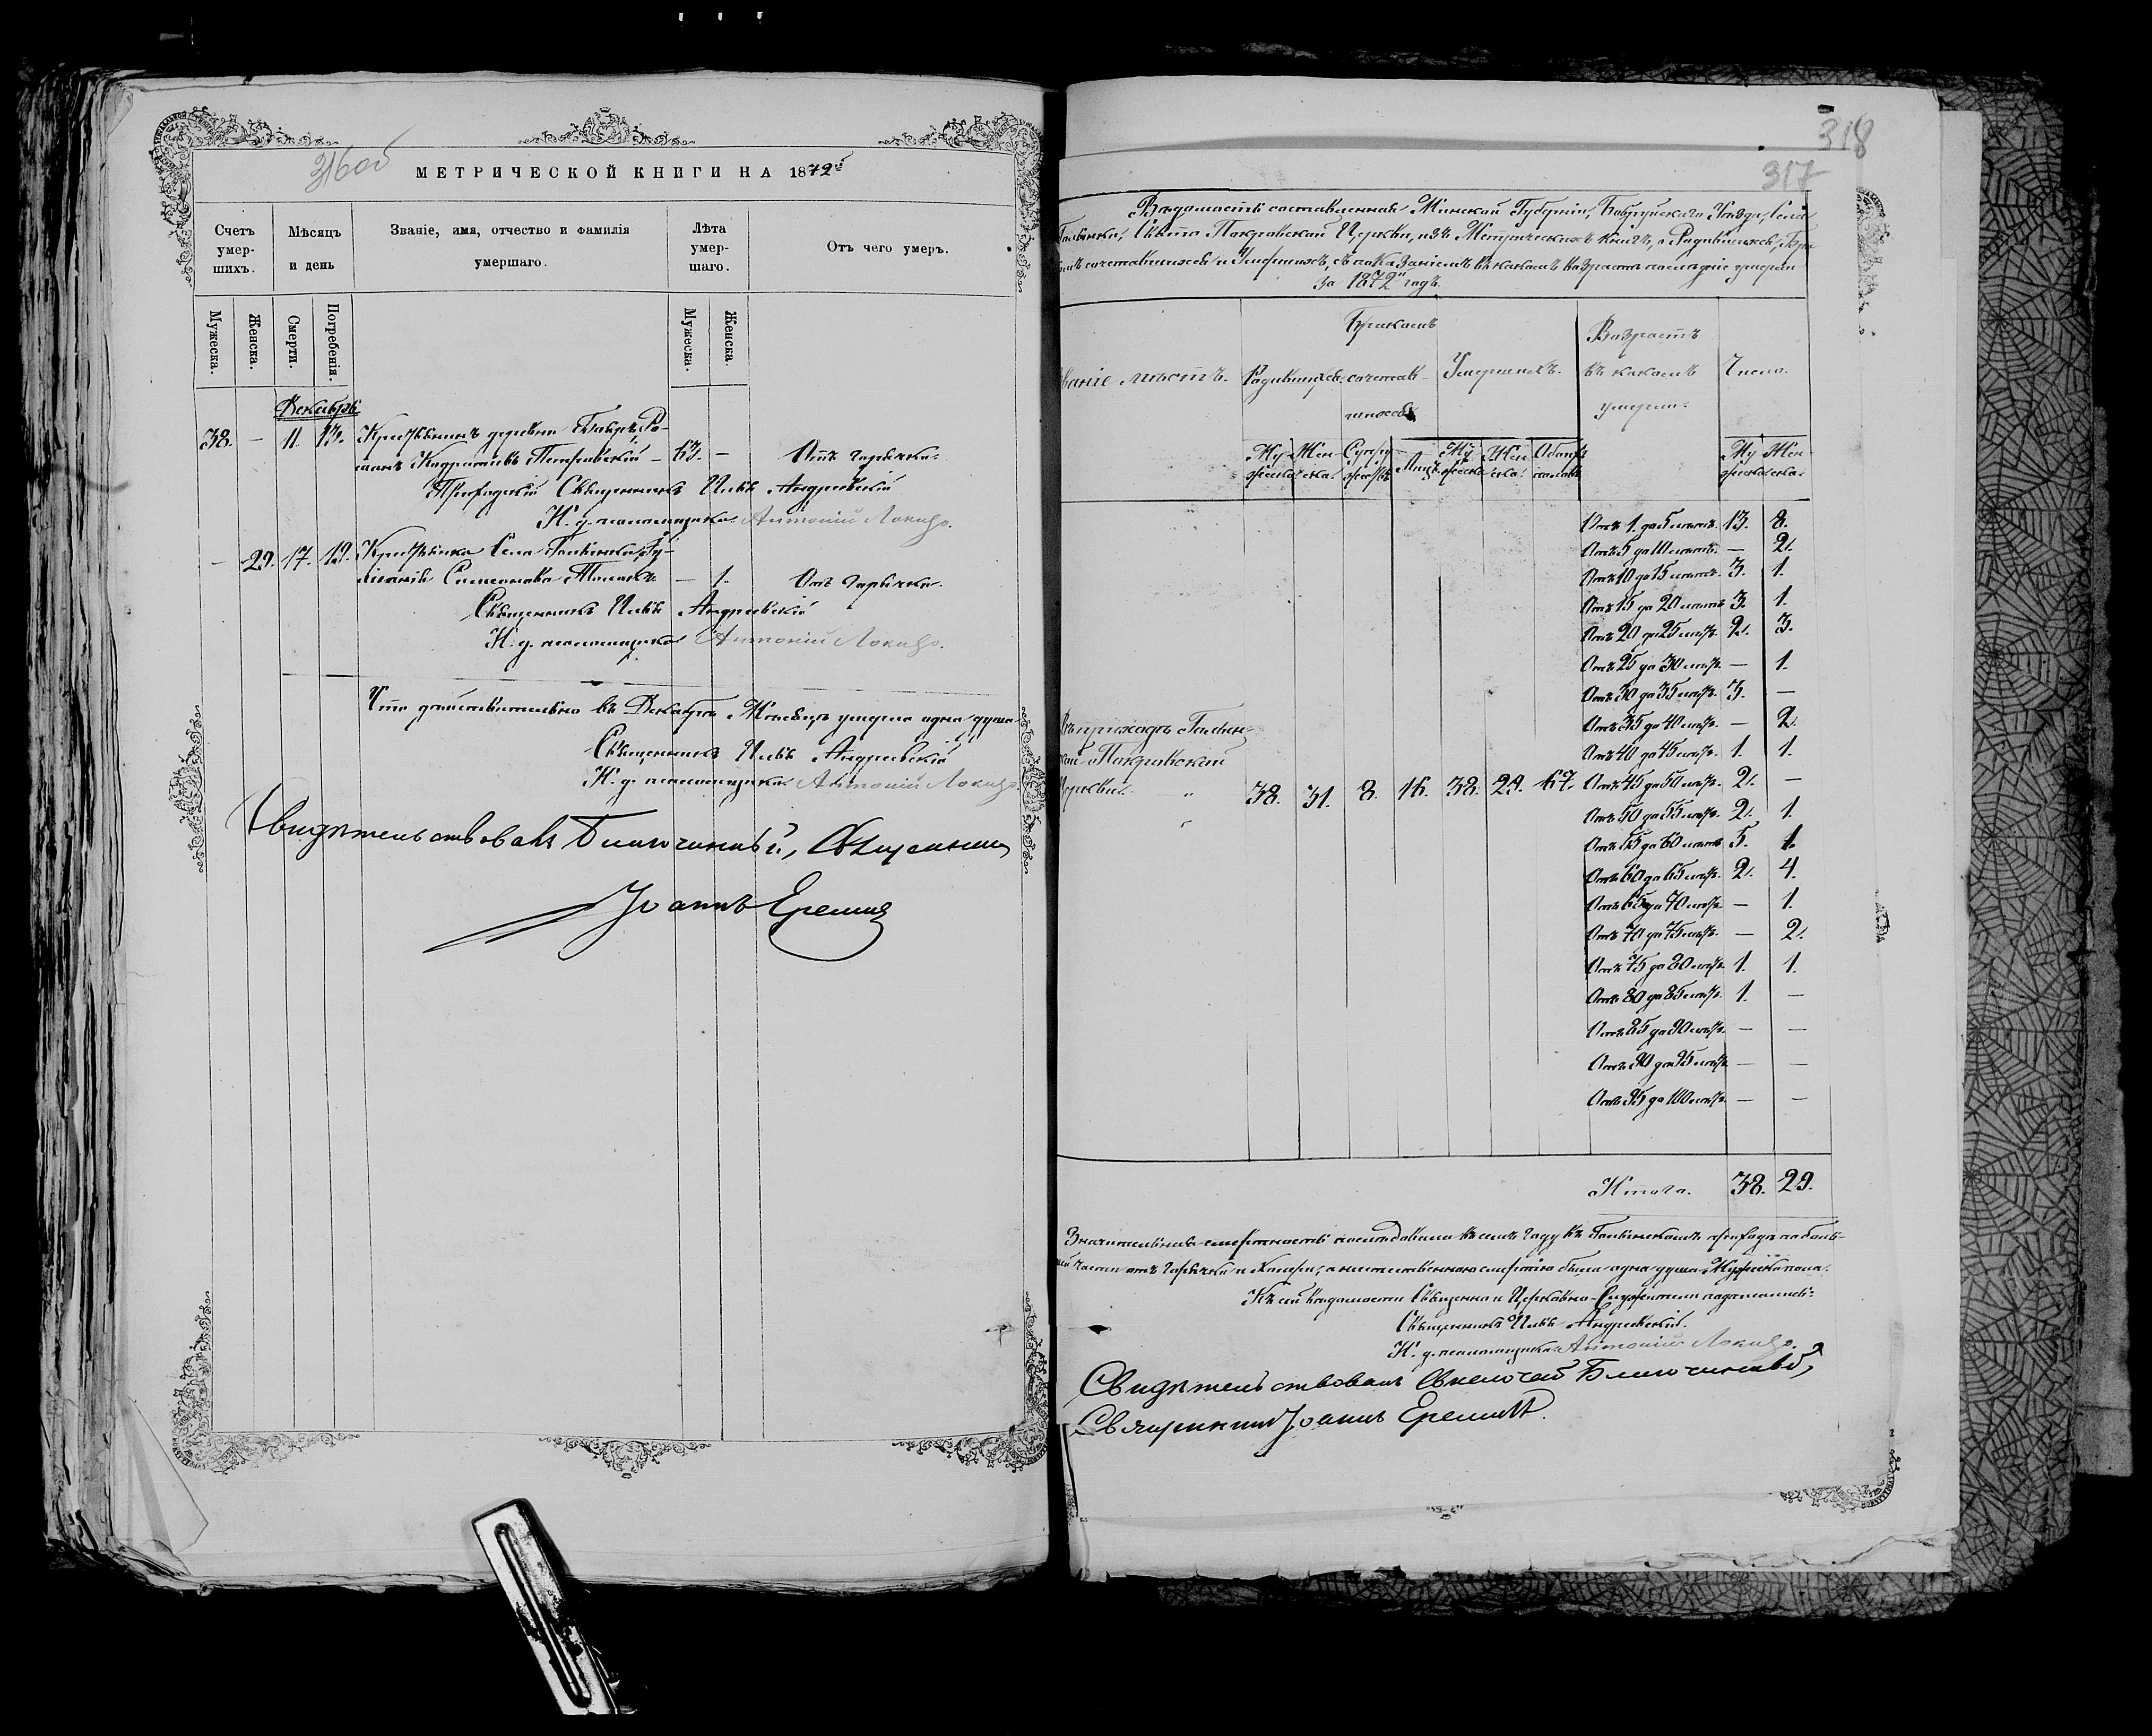 316об
МЕТРИЧЕСКОЙ КНИГИ НА 1872й
Счетъ умершихъ.
Мѣсяцъ и день
Званіе, имя, отчество и фамилія умершаго.
Лѣта умершаго.
Отъ чего умеръ.
Мужеска. Женска. Смерти. Погребенія. Мужеска. Женска.
Декабрь
38. — 11. 13. Крестьянинъ деревни Бобръ, Ро-
манъ Петровскій — 63. — Отъ горячки.
Приходскій Священникъ Андреевскій
И. д. псаломщика Антоній
— 29. 17. 19. Крестьянка Села
— 1. Отъ горячки.
Священникъ Андреевскій
И. д. псаломщика Антоній
Что дѣйствительно въ Декабрѣ Мѣсяцѣ умерла одна душа
Священникъ Андреевскій
И. д. псаломщика Антоній
Свидѣтельствовалъ Благочинный, Священникъ
Іоаннъ
318
317
Вѣдомость составленная Минской Губерніи, Бобруйскаго Уѣзда, Села
Свято Покровской Церкви, изъ Метрическихъ книгъ, о Родившихся, Бра-
комъ сочетавшихся и Умершихъ, съ показаніемъ въ какомъ возрастѣ послѣдніе умерли
за 1872й годъ.
званіе мѣстъ. Родившихся. Бракомъ сочетавшихся Умершихъ. Возрастъ въ какомъ умерли. Число.
Мужеска Женска. Супружествъ Лицъ Мужеска Женска. Обоего пола Мужеска Женска.
Отъ 1. до 5 лѣтъ. 13. 8.
Отъ 5 до 10 лѣтъ. — 2.
Отъ 10 до 15 лѣтъ. 3. 1.
Отъ 15 до 20 лѣтъ 3. 1.
Отъ 20 до 25 лѣтъ. 2. 3.
Отъ 25 до 30 лѣтъ. — 1.
Отъ 30 до 35 лѣтъ. 3. —
Отъ 35 до 40 лѣтъ. — 2.
Отъ 40 до 45 лѣтъ. 1. 1.
Въ приходѣ
ской Покровской
Церкви. 38. 31. 8. 16. 38. 29. 67. Отъ 45 до 50 лѣтъ. 2. —
Отъ 50 до 55 лѣтъ. 2. 1.
Отъ 55 до 60 лѣтъ 5. 1.
Отъ 60 до 65 лѣтъ. 2. 4.
Отъ 65 до 70 лѣтъ — 1.
Отъ 70 до 75 лѣтъ. — 2.
Отъ 75 до 80 лѣтъ. 1. 1.
Отъ 80 до 85 лѣтъ. 1. —
Отъ 85 до 90 лѣтъ. — —
Отъ 90 до 95 лѣтъ — —
Отъ 95 до 100 лѣтъ. — —
Итого. 38. 29.
Значительная смертность послѣдовала въ семъ году въ приходѣ по боль-
шей части отъ Горячки и Холеры, смертію была одна душа Мужеска пола.
Къ сей вѣдомости Священно и Церковно-Служители подписались:
Священникъ Андреевскій.
И. д. псаломщика Антоній
Свидѣтельствовалъ Благочинный,
Священникъ Іоаннъ